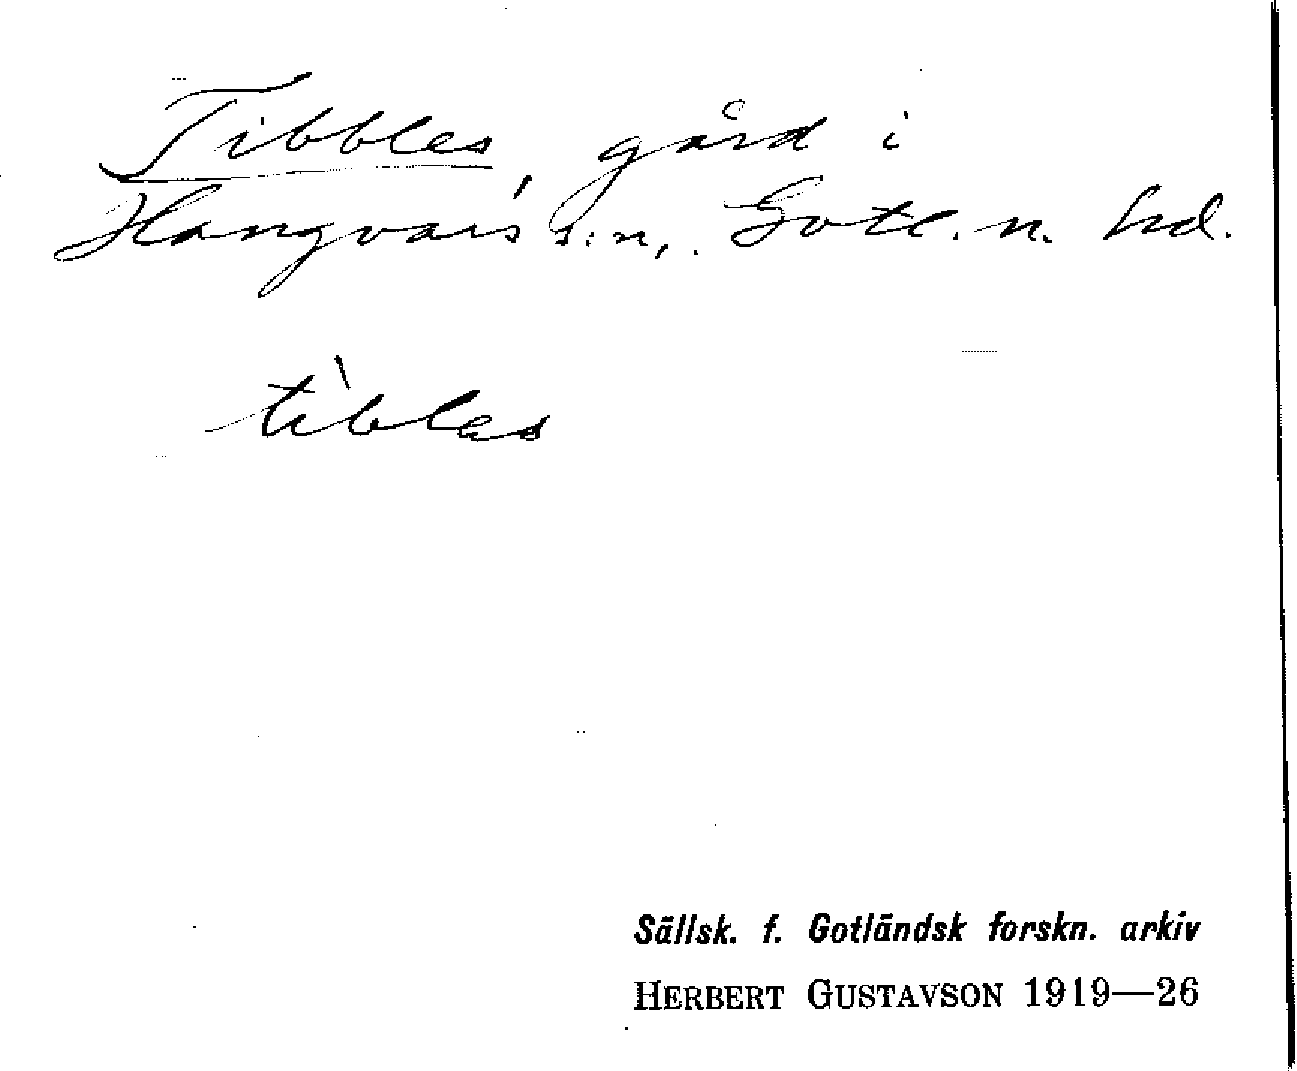 Tibbles, gård i
Hangvars s:n, Gotl. n. hd.
tìbles
Sällsk. f. Gotländsk forskn. arkiv
HERBERT GUSTAVSON 1919—26